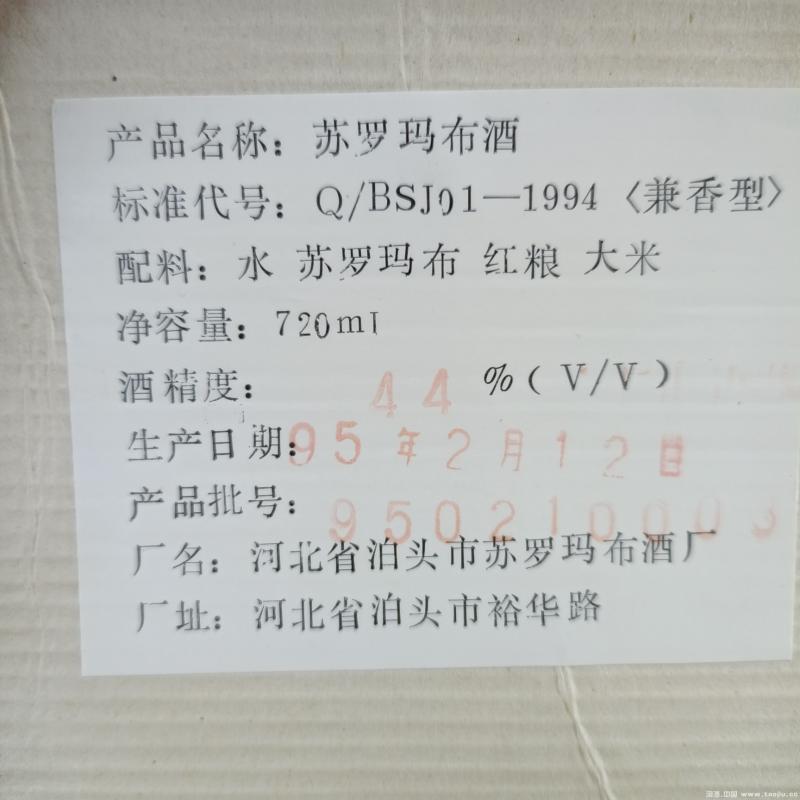 产品名称：苏罗玛布酒
标准代号：Q/BSJ01—1994〈兼香型〉
配料：水 苏罗玛布 红粮 大米
净容量：720ml
酒精度：44 %(V/V)
生产日期：95年2月12日
产品批号：950210003
厂名：河北省泊头市苏罗玛布酒厂
厂址：河北省泊头市裕华路